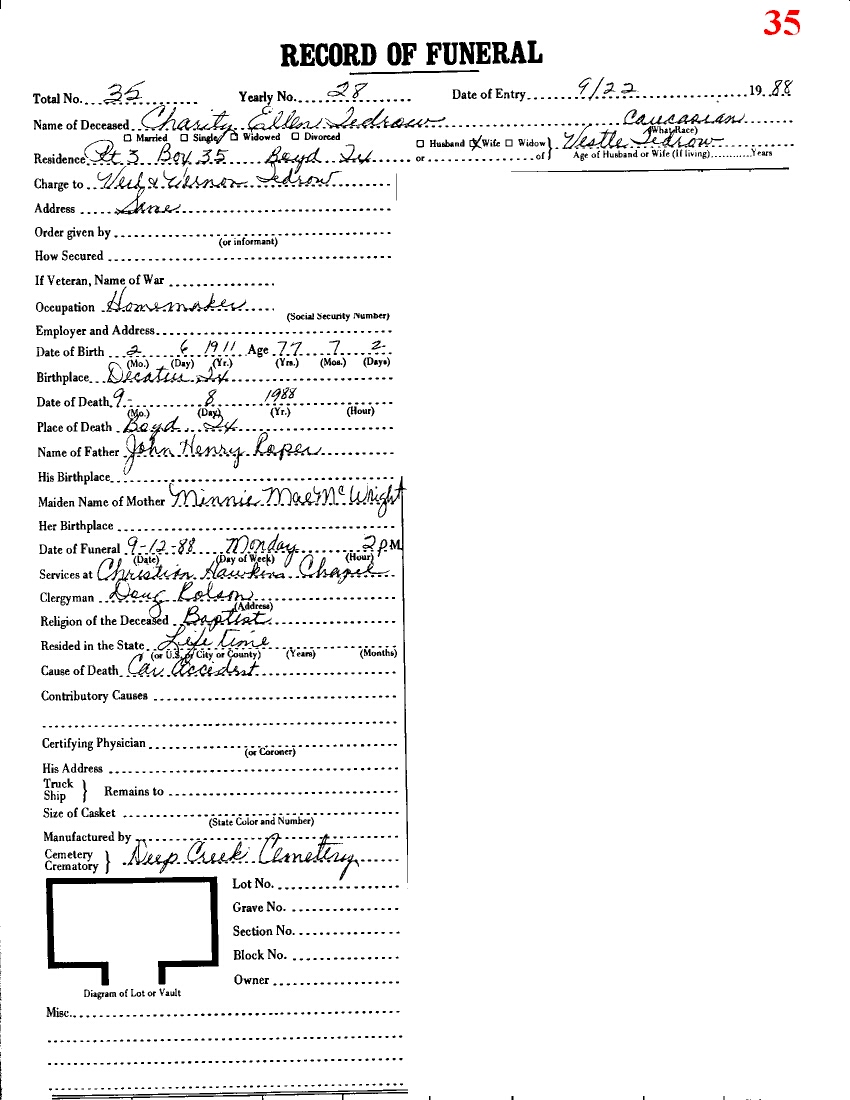 35
RECORD OF FUNERAL
Total No. 35 Yearly No. 28 Date of Entry 9/22 1988
Name of Deceased Charity Ellen Tedrow Caucasian
☐ Married ☐ Single ☐ Widowed ☐ Divorced (What Race)
Residence Rt 3 Box 35 Boyd Tx ☐ Husband ☒ Wife ☐ Widow or of } Vestle Tedrow
Age of Husband or Wife (If living) Years
Charge to & Vernon Tedrow
Address Same
Order given by
(or informant)
How Secured
If Veteran, Name of War
Occupation Homemaker
(Social Security Number)
Employer and Address
Date of Birth 2 6 1911 Age 77 7 2
(Mo.) (Day) (Yr.) (Yrs.) (Mos.) (Days)
Birthplace Decatur Tx
Date of Death 9- 8 1988
(Mo.) (Day) (Yr.) (Hour)
Place of Death Boyd Tx
Name of Father John Henry Roper
His Birthplace
Maiden Name of Mother Minnie Mae McWright
Her Birthplace
Date of Funeral 9-12-88 Monday 2 P.M.
(Date) (Day of Week) (Hour)
Services at Christian Hawkins Chapel
Clergyman Doug
(Address)
Religion of the Deceased Baptist
Resided in the State Life time
(or U.S. or City or County) (Years) (Months)
Cause of Death Car Accident
Contributory Causes
Certifying Physician
(or Coroner)
His Address
Truck
Ship } Remains to
Size of Casket
(State Color and Number)
Manufactured by
Cemetery
Crematory } Deep Creek Cemetery
Lot No.
Grave No.
Section No.
Block No.
Owner
Diagram of Lot or Vault
Misc.